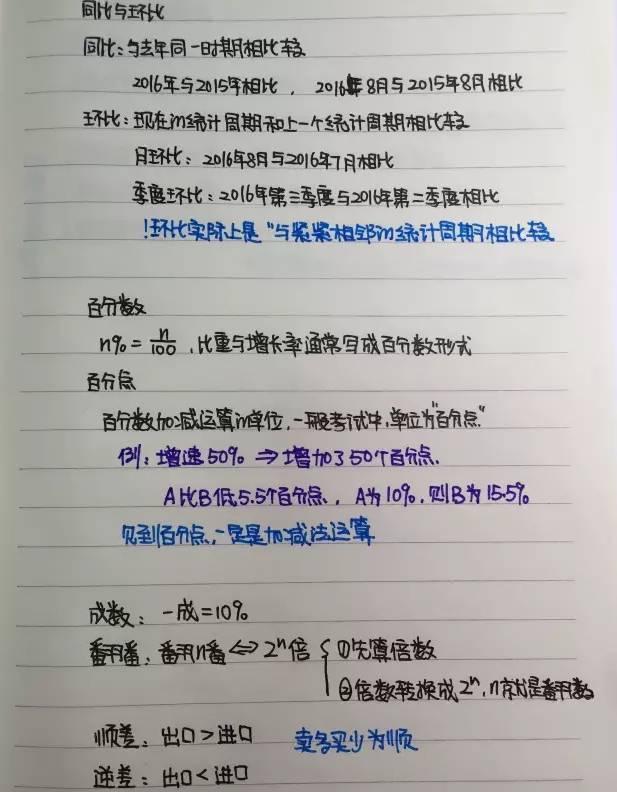 同比与环比
同比：与去年同一时期相比较
2016年与2015年相比，2016年8月与2015年8月相比
环比：现在的统计周期和上一个统计周期相比较
月环比：2016年8月与2016年7月相比
季度环比：2016年第三季度与2016年第二季度相比
!环比实际上是“与紧紧相邻的统计周期相比较
百分数
n%=n/100，比重与增长率通常写成百分数形式
百分点
百分数加减运算的单位，一般考试中，单位为"百分点"
例：增速50% ⇒ 增加了50个百分点.
A比B低5.5个百分点，A为10%，则B为15.5%
见到百分点，一定是加减法运算
成数：一成=10%
翻番：翻n番⇔2ⁿ倍 { ①先算倍数
②倍数转换成2ⁿ，n就是翻番数
顺差：出口>进口 卖多买少为顺
逆差：出口<进口